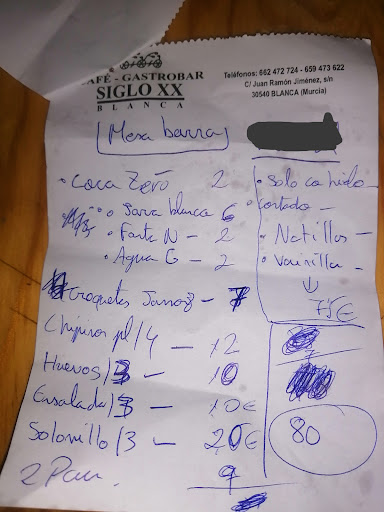 CAFÉ - GASTROBAR
SIGLO XX
BLANCA
Teléfonos: 662 472 724 - 659 473 622
C/ Juan Ramón Jiménez, s/n
30540 BLANCA (Murcia)
Mesa barra
• Coca Zero 2
• Jarra blanca 6
• Fanta N - 2
• Agua G - 2
Croquetas Jamon - 7
Chipiron pl/4 - 12
Huevos/3 - 10
Ensalada/3 - 10€
Solomillo/3 - 20€
2 Pan.
9
• Solo con hielo -
• Cortado -
• Natillas -
• Vainilla -
↓
80